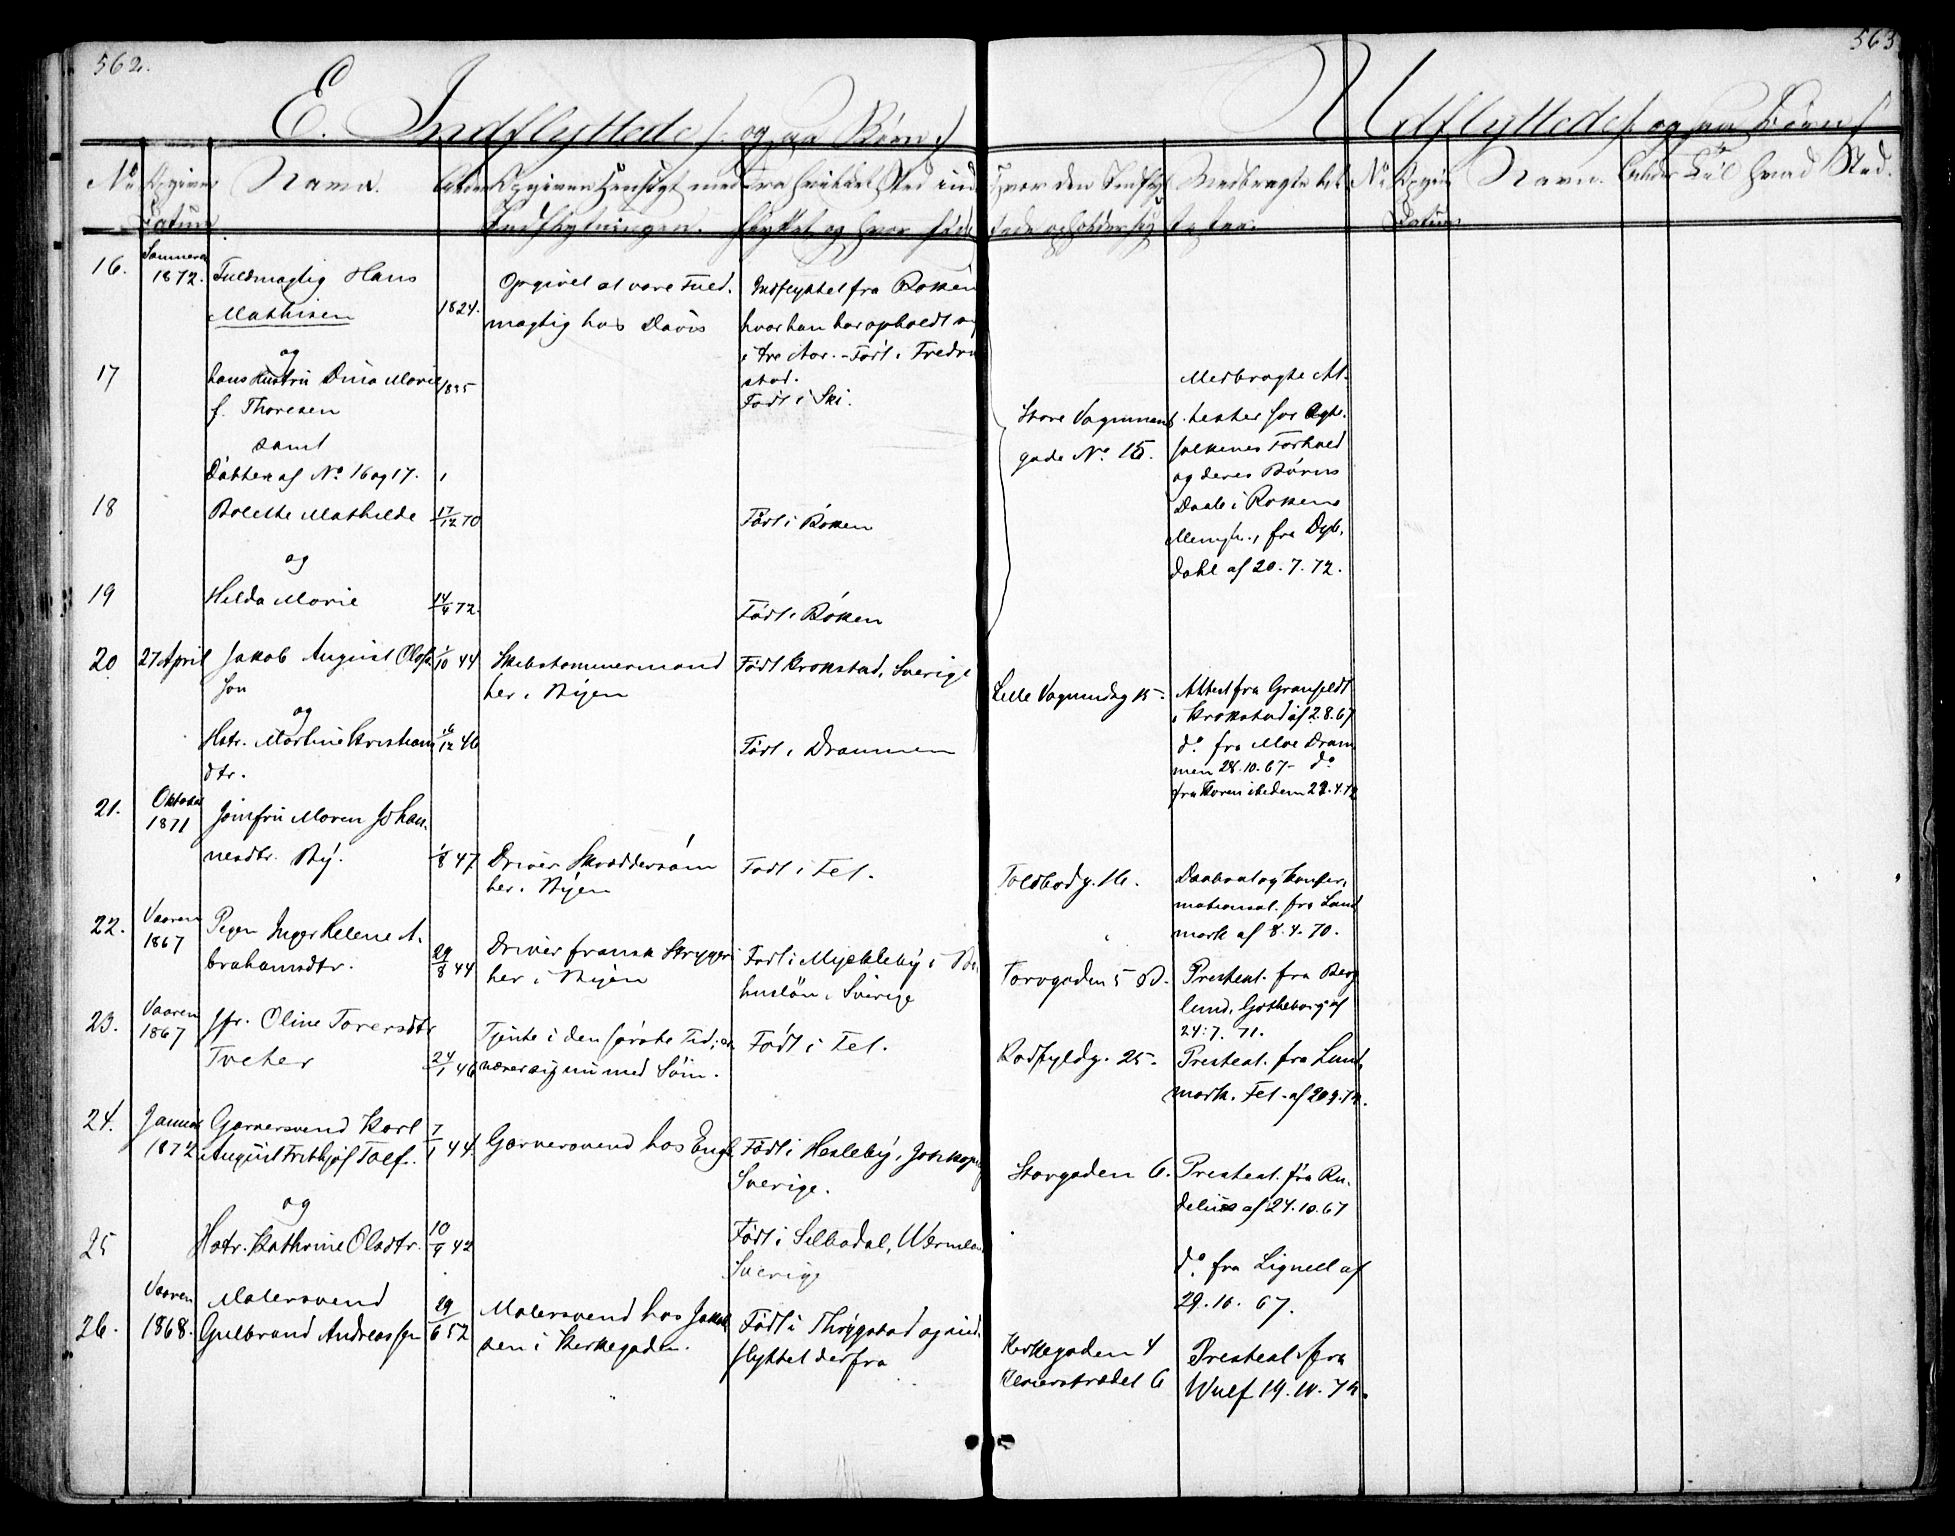 562.
563
E. Indflyttede (: og saa Børn :)
Udflyttede (: og saa Børn :)
No
Navn.
Alder
Fra hvilket Sted ind-
flyttet og hvor født
Hvor den Indflyt-
tede opholder sig
Medbragte At-
tester.
No
Navn.
Alder
Til hvad Sted.
16.
Sommeren
1872.
Fuldmægtig Hans
Mathisen
1824.
Opgivet at være Fuld-
mægtig hos Davis
Indflyttet fra Røken
hvor han har opholdt sig
i tre Aar. - Født i Fredrik
stad.
og
17
hans Hustru Dina Marie
f. Thoresen
1835
Født i Ski.
Store Vognmands
gade No 15.
Medbragte At-
tester for Ægte-
folkenes Forhold
og deres Børns
Daab i Røkens
Menigh., fra Dyb-
dahl af 20.7.72.
samt
Døttre af No 16 og 17.
18
Bolette Mathilde
17/12 70
Født i Røken
og
19
Hilda Marie
14/4 72.
Født i Røken
20
27 April
Jakob August Olofs
son
1/10 44
Skibstømmermand
her i Byen
Født Krokstad, Sverige
Lille Vognmdsg 15.
Attest fra Granfeldt
i Krokstad af 2.8.67
do fra Moe Dram
men 28.10.67 - do
og
Hstr. Martine Kristians
dtr.
16/12 46
Født i Drammen
21.
Oktober
1871
Jomfru Maren Johan-
nesdtr. By.
1/8 47
Driver Skræddersøm
her i Byen
Født i Fet.
Toldbodg. 16.
Daabsat og Konfir-
mationsat. fra Lund
mark af 8.4.70.
22.
Vaaren
1867
Pigen Inger Helene A-
brahamsdtr.
29/8 44
Driver fransk Strygeri
her i Byen
Født i Myckleby i Bo-
huslän, Sverige
Torvgaden 5 B.
Presteat. fra Berg
lund, Gotheborg af
24.7.71.
23.
Vaaren
1867
Jfr. Oline Toversdtr
Tveter
24/1 46
Tjente i den første Tid, er-
nærer sig nu med Søm.
Født i Fet.
Rødfyldg. 25.
Presteat. fra Lund
mark. Fet - af 20.9.72.
24.
Januar
1872
Garversvend Karl
August Fritbjof Tolf.
7/1 44
Garversvend hos Engh
Født i Hesleby, Jønkøping
Sverige.
Storgaden 6.
Presteat. fra Ru-
delius af 24.10.67
og
25
Hstr. Kathrine Olsdtr.
10/9 42
Født i Silbodal, Wermland
Sverige
do fra Lignell af
29.10.67.
26.
Vaaren
1868.
Malersvend
Gulbrand Andreassen
29/6 52
Malersvend hos Jakob
sen i Kirkegaden.
Født i Thrygstad og ind-
flyttet derfra
Kirkegaden 4
Presteat. fra
Wulf 19.10.72.